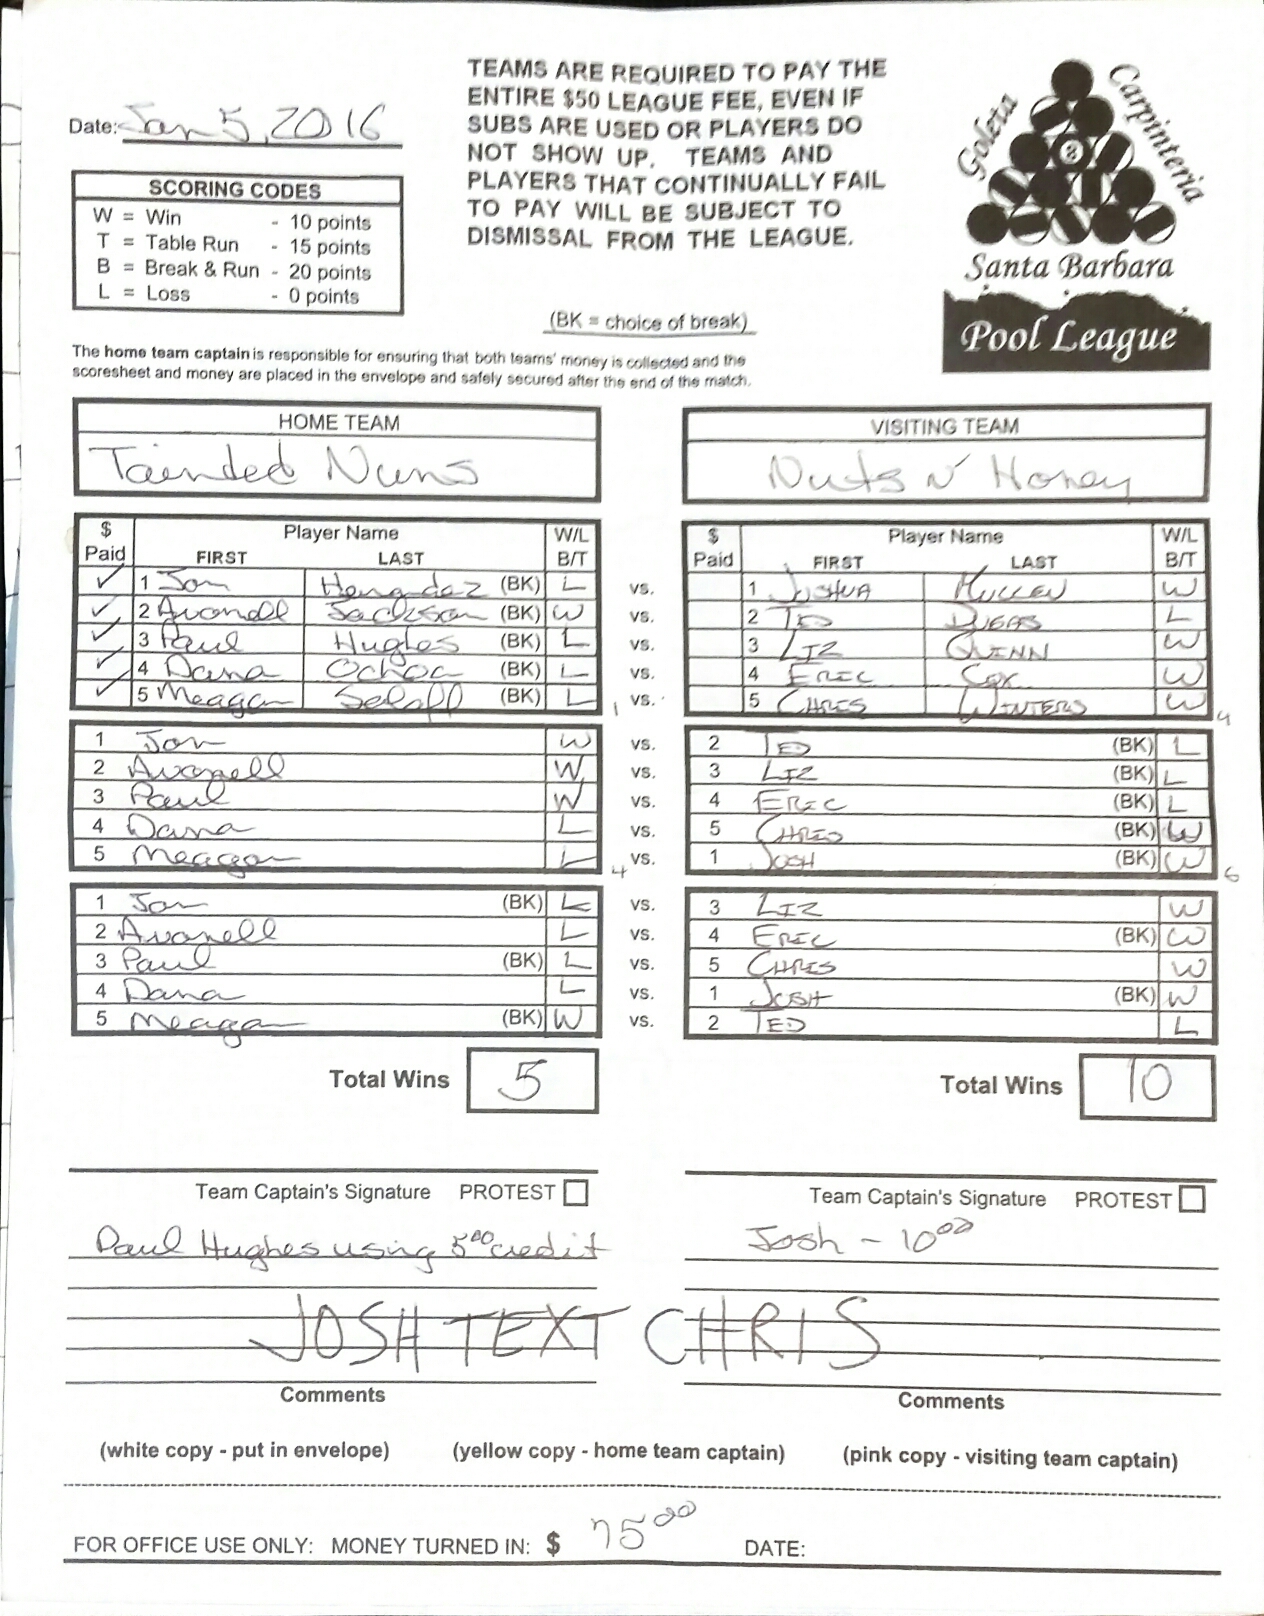 Date: Jan 5, 2016
TEAMS ARE REQUIRED TO PAY THE
ENTIRE $50 LEAGUE FEE, EVEN IF
SUBS ARE USED OR PLAYERS DO
NOT SHOW UP. TEAMS AND
PLAYERS THAT CONTINUALLY FAIL
TO PAY WILL BE SUBJECT TO
DISMISSAL FROM THE LEAGUE.
Goleta
Carpinteria
8
Santa Barbara
Pool League
SCORING CODES
W = Win - 10 points
T = Table Run - 15 points
B = Break & Run - 20 points
L = Loss - 0 points
(BK = choice of break)
The home team captain is responsible for ensuring that both teams' money is collected and the
scoresheet and money are placed in the envelope and safely secured after the end of the match.
HOME TEAM VISITING TEAM
Tainted Nuns Nuts N' Honey
$ Paid Player Name FIRST LAST W/L B/T $ Paid Player Name FIRST LAST W/L B/T
✓ 1 Jon (BK) L vs. 1 JOSHUA MULLEN W
✓ 2 Avonell Jackson (BK) W vs. 2 TED DUGAS L
✓ 3 Paul Hughes (BK) L vs. 3 LIZ QUINN W
✓ 4 Dana Ochoa (BK) L vs. 4 ERIC COX W
✓ 5 Meagan (BK) L 1 vs. 5 CHRIS WINTERS W 4
1 Jon W vs. 2 TED (BK) L
2 Avonell W vs. 3 LIZ (BK) L
3 Paul W vs. 4 ERIC (BK) L
4 Dana L vs. 5 CHRIS (BK) W
5 Meagan L 4 vs. 1 JOSH (BK) W 6
1 Jon (BK) L vs. 3 LIZ W
2 Avonell L vs. 4 ERIC (BK) W
3 Paul (BK) L vs. 5 CHRIS W
4 Dana L vs. 1 JOSH (BK) W
5 Meagan (BK) W vs. 2 TED L
Total Wins 5 Total Wins 10
Team Captain's Signature PROTEST Team Captain's Signature PROTEST
Paul Hughes using 5.00 credit Josh - 10.00
JOSH TEXT CHRIS
Comments Comments
(white copy - put in envelope) (yellow copy - home team captain) (pink copy - visiting team captain)
FOR OFFICE USE ONLY: MONEY TURNED IN: $ 75.00 DATE: